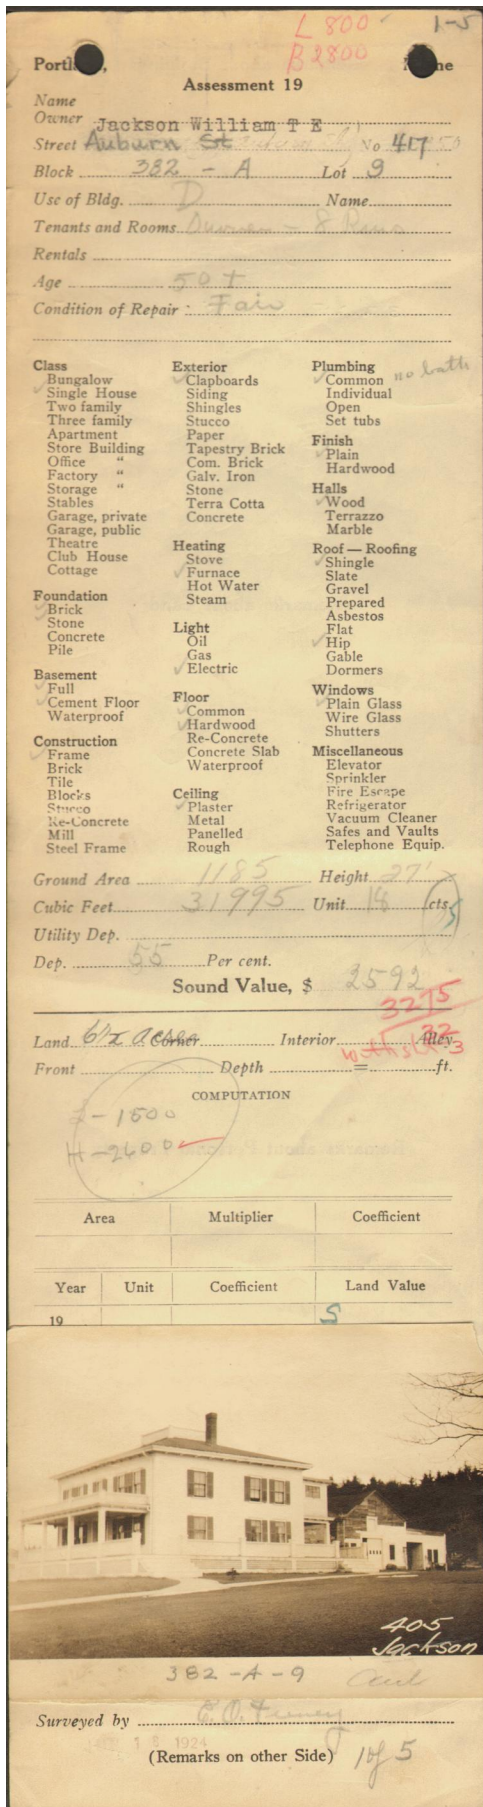 L 800
B 2800
1-5
Portl , ne
Assessment 19
Name
Owner Jackson William T E
Street Auburn St No 417
Block 382 - A Lot 9
Use of Bldg. D Name
Tenants and Rooms Owner - 8 Rms
Rentals
Age 50 +
Condition of Repair : Fair
Class
Bungalow
Single House
Two family
Three family
Apartment
Store Building
Office "
Factory "
Storage "
Stables
Garage, private
Garage, public
Theatre
Club House
Cottage
Foundation
Brick
Stone
Concrete
Pile
Basement
Full
Cement Floor
Waterproof
Construction
Frame
Brick
Tile
Blocks
Stucco
Re-Concrete
Mill
Steel Frame
Exterior
Clapboards
Siding
Shingles
Stucco
Paper
Tapestry Brick
Com. Brick
Galv. Iron
Stone
Terra Cotta
Concrete
Heating
Stove
Furnace
Hot Water
Steam
Light
Oil
Gas
Electric
Floor
Common
Hardwood
Re-Concrete
Concrete Slab
Waterproof
Ceiling
Plaster
Metal
Panelled
Rough
Plumbing
Common no bath
Individual
Open
Set tubs
Finish
Plain
Hardwood
Halls
Wood
Terrazzo
Marble
Roof — Roofing
Shingle
Slate
Gravel
Prepared
Asbestos
Flat
Hip
Gable
Dormers
Windows
Plain Glass
Wire Glass
Shutters
Miscellaneous
Elevator
Sprinkler
Fire Escape
Refrigerator
Vacuum Cleaner
Safes and Vaults
Telephone Equip.
Ground Area 1185 Height 27'
Cubic Feet 31995 Unit 18 cts.
Utility Dep.
Dep. 55 Per cent.
Sound Value, $ 2592
3275
Land 6½ acres Corner Interior Alley
Front Depth = ft.
COMPUTATION
L - 1500
H - 2600
Area Multiplier Coefficient
Year Unit Coefficient Land Value
19 S
405
Jackson
382 - A - 9
Surveyed by
18 1924
(Remarks on other Side) 1 of 5